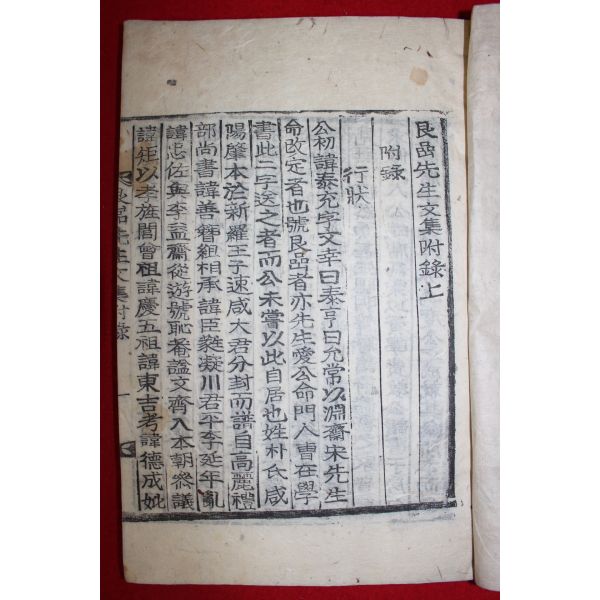 艮嵒先生文集附錄上
附錄
行狀
公初諱泰充字文幸曰泰亨曰允常以淵齋宋先生
命改定者也號艮嵒者亦先生愛公命門人曺在學
書此二字送之者而公未嘗以此自居也姓朴氏咸
陽肇本於新羅王子速咸大君分封而譜自高麗禮
部尚書諱善簪組相承諱臣蕤凝川君平李延年亂
諱忠佐與李益齋從遊號恥菴諡文齊入本朝叅議
諱矩以孝旌閭曾祖諱慶五祖諱東吉考諱德成妣
艮嵒先生文集附錄 一